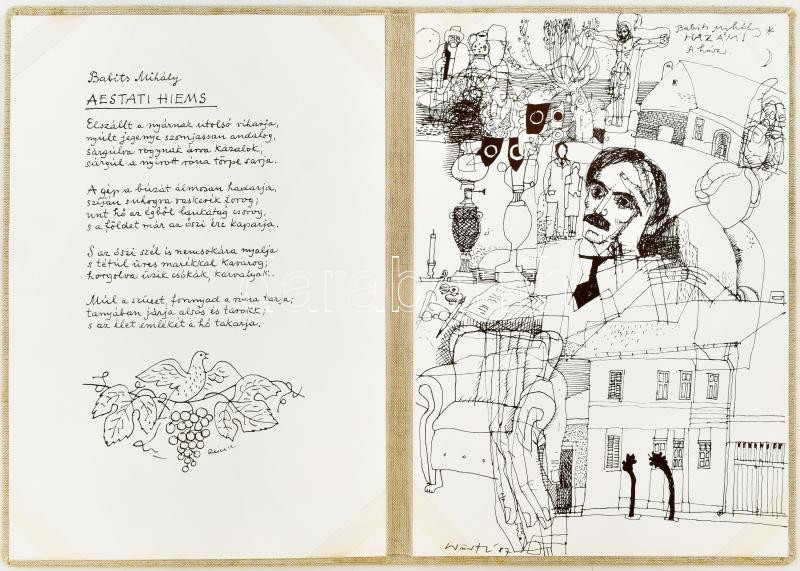 Babits Mihály
AESTATI HIEMS
Elszállt a nyárnak utolsó viharja,
nyúlt jegenye szomjassan andalog,
sárgulva rogynak árva kazalok,
sárgul a nyirott róna törpe sarja.
A gép a búzát álmosan hadarja,
szíján suhogva vaskerék forog;
unt hő az égből lankatag csorog,
s a földet már az őszi ére kaparja.
S az őszi szél is nemsokára nyalja
s tétúl üres marikkal kavarog;
horgolva űzik csókák, karvalyak.
Múl a szüret, fonnyad a róna tarja;
tanyában járja alsós és tarokk;
s az élet emlékét a hó takarja.
Babits Mihály
HAZÁM!
A ház.
darabanth